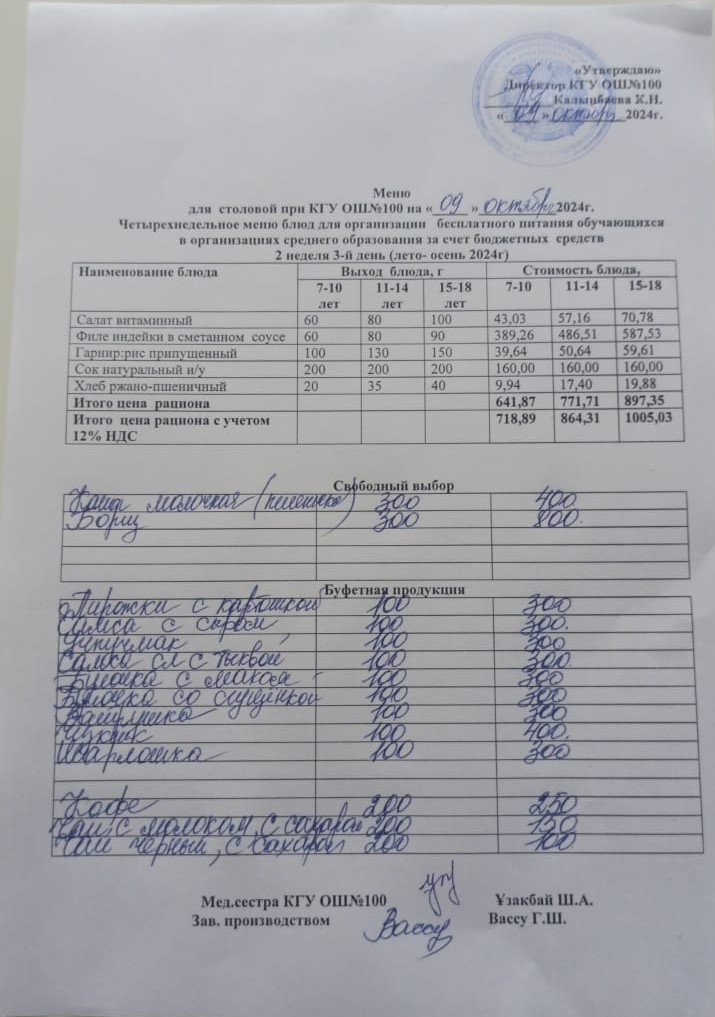 «Утверждаю»
Директор КГУ ОШ№100
Калынбаева К.Н.
« 09 » октября 2024г.
Меню
для столовой при КГУ ОШ№100 на « 09 » октября 2024г.
Четырехнедельное меню блюд для организации бесплатного питания обучающихся
в организациях среднего образования за счет бюджетных средств
2 неделя 3-й день (лето- осень 2024г)
Наименование блюда Выход блюда, г Стоимость блюда,
7-10 лет 11-14 лет 15-18 лет 7-10 11-14 15-18
Салат витаминный 60 80 100 43,03 57,16 70,78
Филе индейки в сметанном соусе 60 80 90 389,26 486,51 587,53
Гарнир:рис припущенный 100 130 150 39,64 50,64 59,61
Сок натуральный и/у 200 200 200 160,00 160,00 160,00
Хлеб ржано-пшеничный 20 35 40 9,94 17,40 19,88
Итого цена рациона 641,87 771,71 897,35
Итого цена рациона с учетом 718,89 864,31 1005,03
12% НДС
Свободный выбор
Каша молочная 300 400
Борщ 300 800
Буфетная продукция
Пирожки с картошкой 100 300
Самса с сыром 100 300
100 300
Самса сл с тыквой 100 300
Булочка с маком 100 300
Булочка со сгущенкой 100 300
100 300
100 400
100 300
Кофе 200 250
Чай с молоком, с сахаром 200 150
Чай черный, с сахаром 200 100
Мед.сестра КГУ ОШ№100 Ұзакбай Ш.А.
Зав. производством Вассу Вассу Г.Ш.